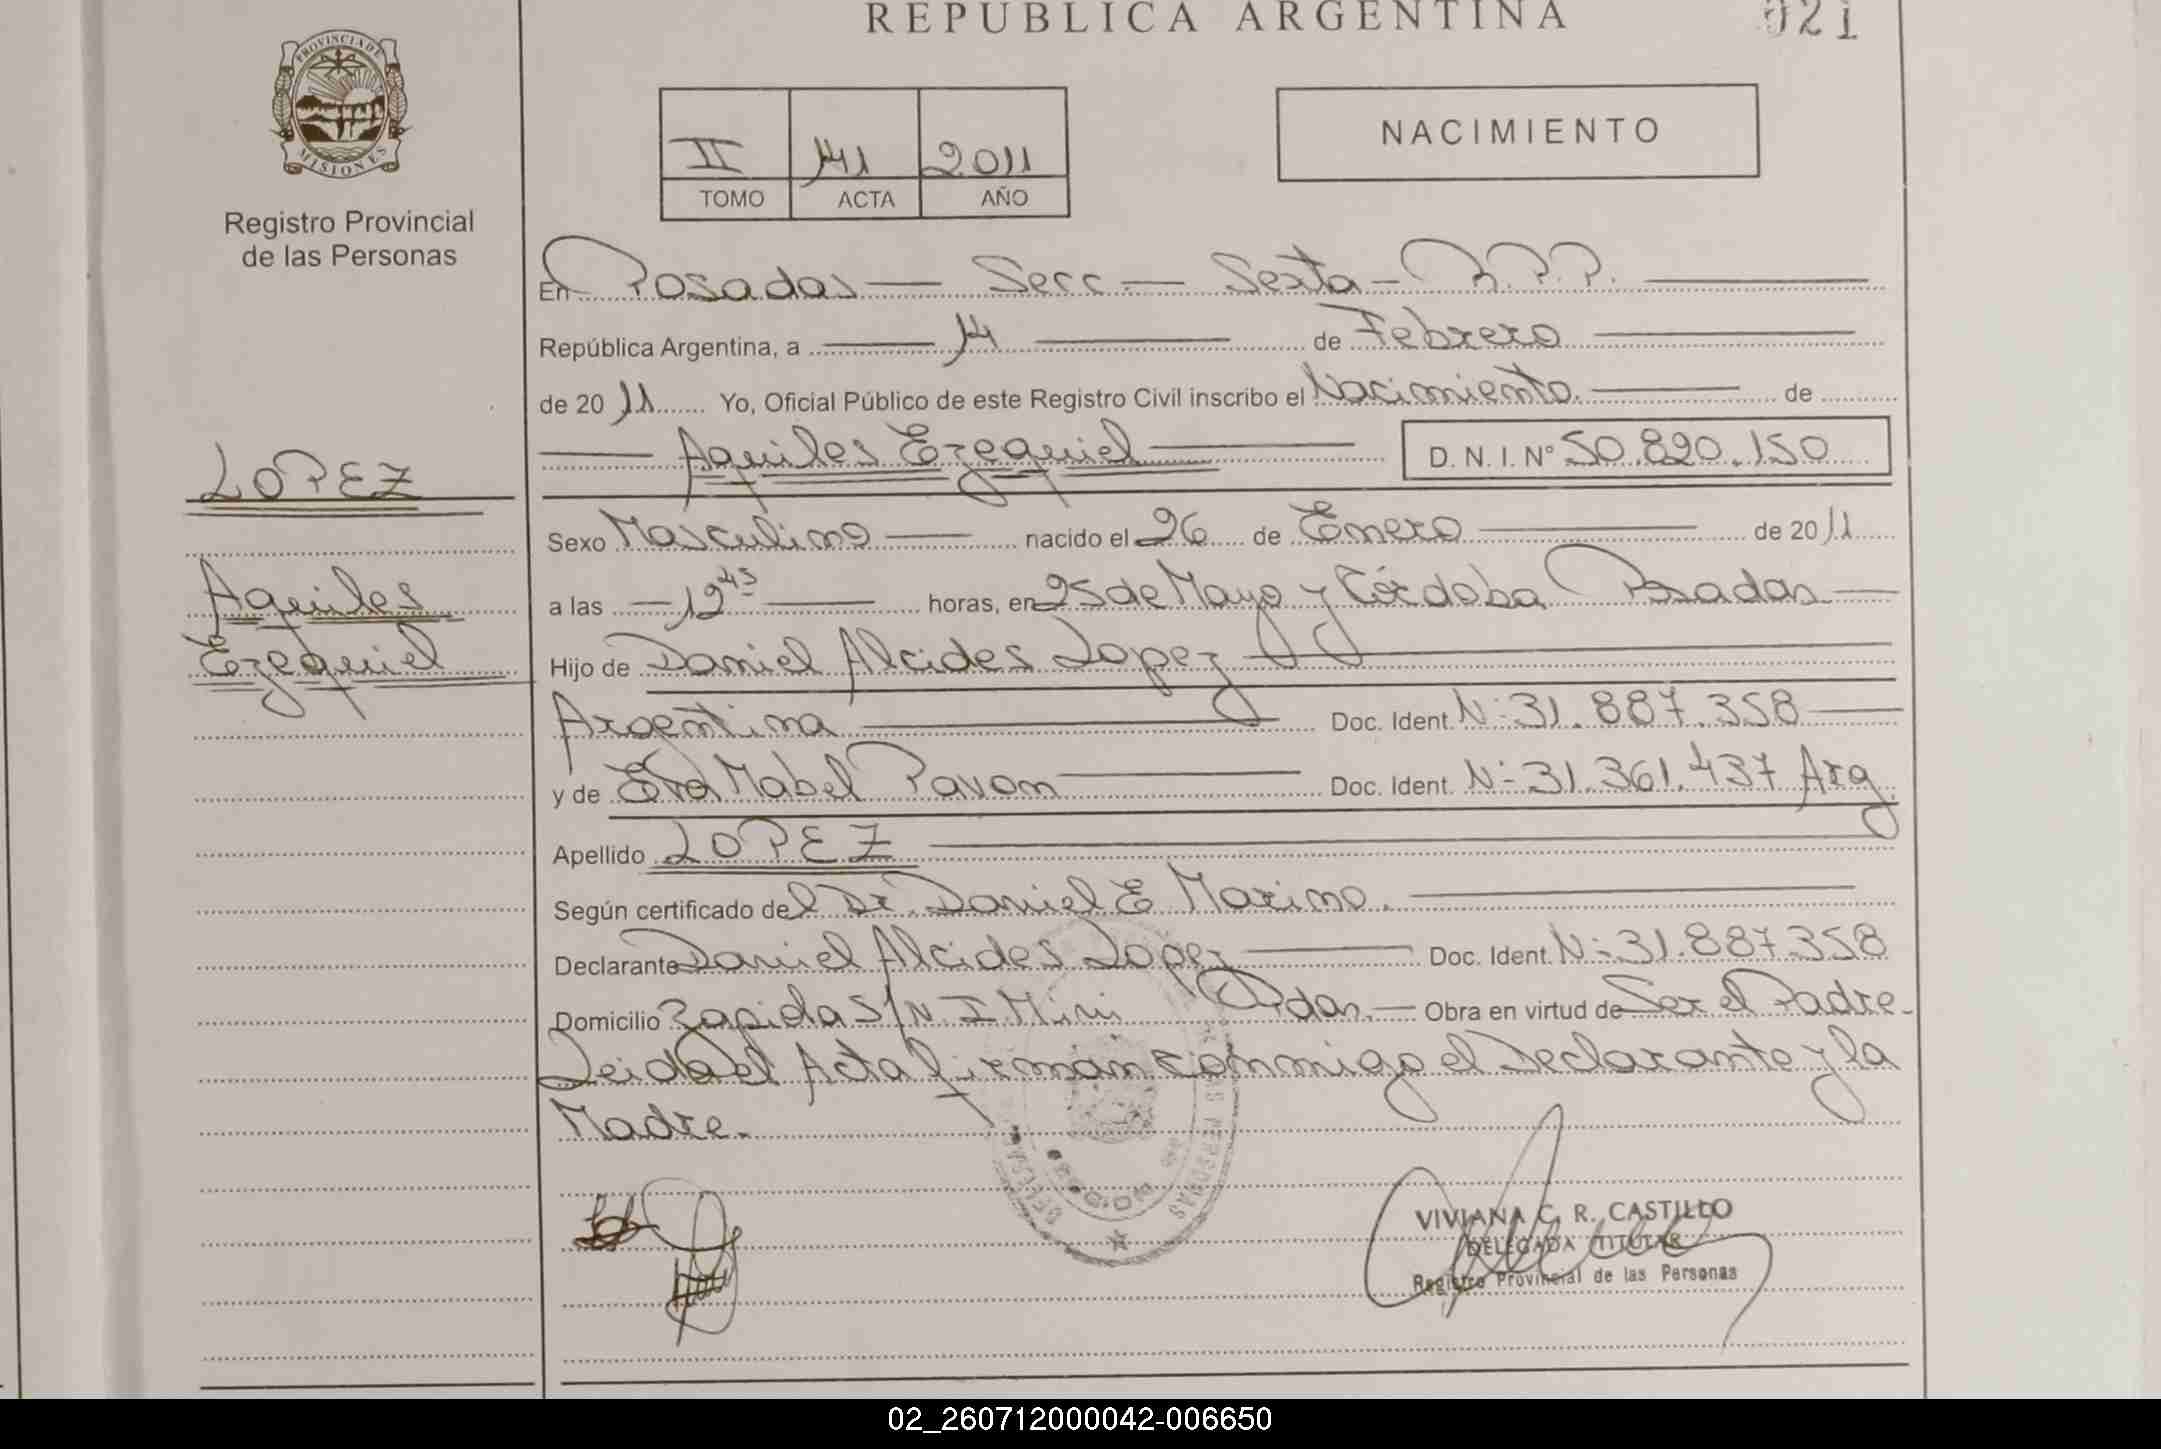 REPUBLICA ARGENTINA
021
PROVINCIA DE
MISIONES
Registro Provincial
de las Personas
II 141 2011
TOMO ACTA AÑO
NACIMIENTO
En Posadas — Secc — Sexta — R.P.P.
República Argentina, a 14 de Febrero
de 2011 Yo, Oficial Público de este Registro Civil inscribo el Nacimiento. de
Aquiles Ezequiel D. N. I. N° 50.820.150
LOPEZ
Aquiles
Ezequiel
Sexo Masculino nacido el 26 de Enero de 2011
a las 12 45 horas, en 25 de Mayo y Córdoba Posadas
Hijo de Daniel Alcides Lopez
Argentina Doc. Ident. N: 31.887.358
y de Eva Mabel Pavon Doc. Ident. N: 31.361.437 Arg.
Apellido LOPEZ
Según certificado del Dr. Daniel E Marino.
Declarante Daniel Alcides Lopez Doc. Ident. N: 31.887.358
Domicilio Zapida S/N I Mini Pdas. Obra en virtud de Ser el Padre.
Leida el Acta firman conmigo el Declarante y la
Madre.
VIVIANA C. R. CASTILLO
DELEGADA TITULAR
Registro Provincial de las Personas
02_260712000042-006650